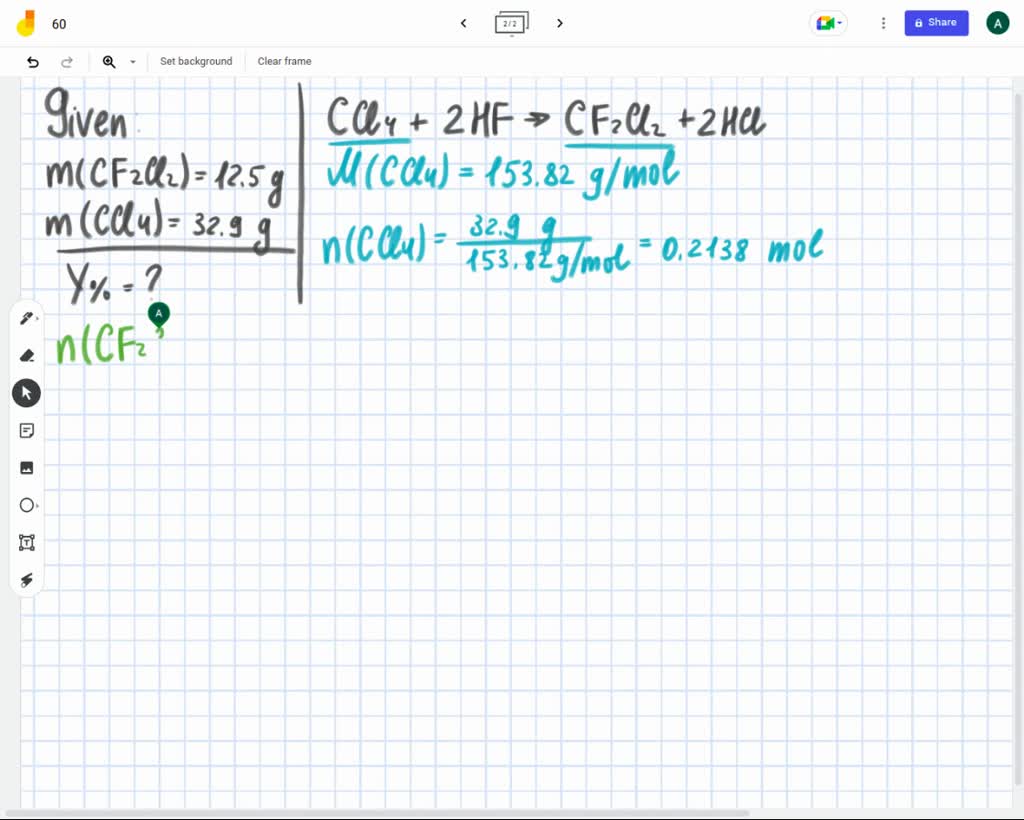 60
2/2
Share
A
Set background
Clear frame
Given
m(CF₂Cl₂) = 12.5 g
m(CCl₄) = 32.9 g
Y% = ?
A
n(CF₂
CCl₄ + 2HF → CF₂Cl₂ + 2HCl
M(CCl₄) = 153.82 g/mol
n(CCl₄) = 32.9 g / 153.82 g/mol = 0.2138 mol